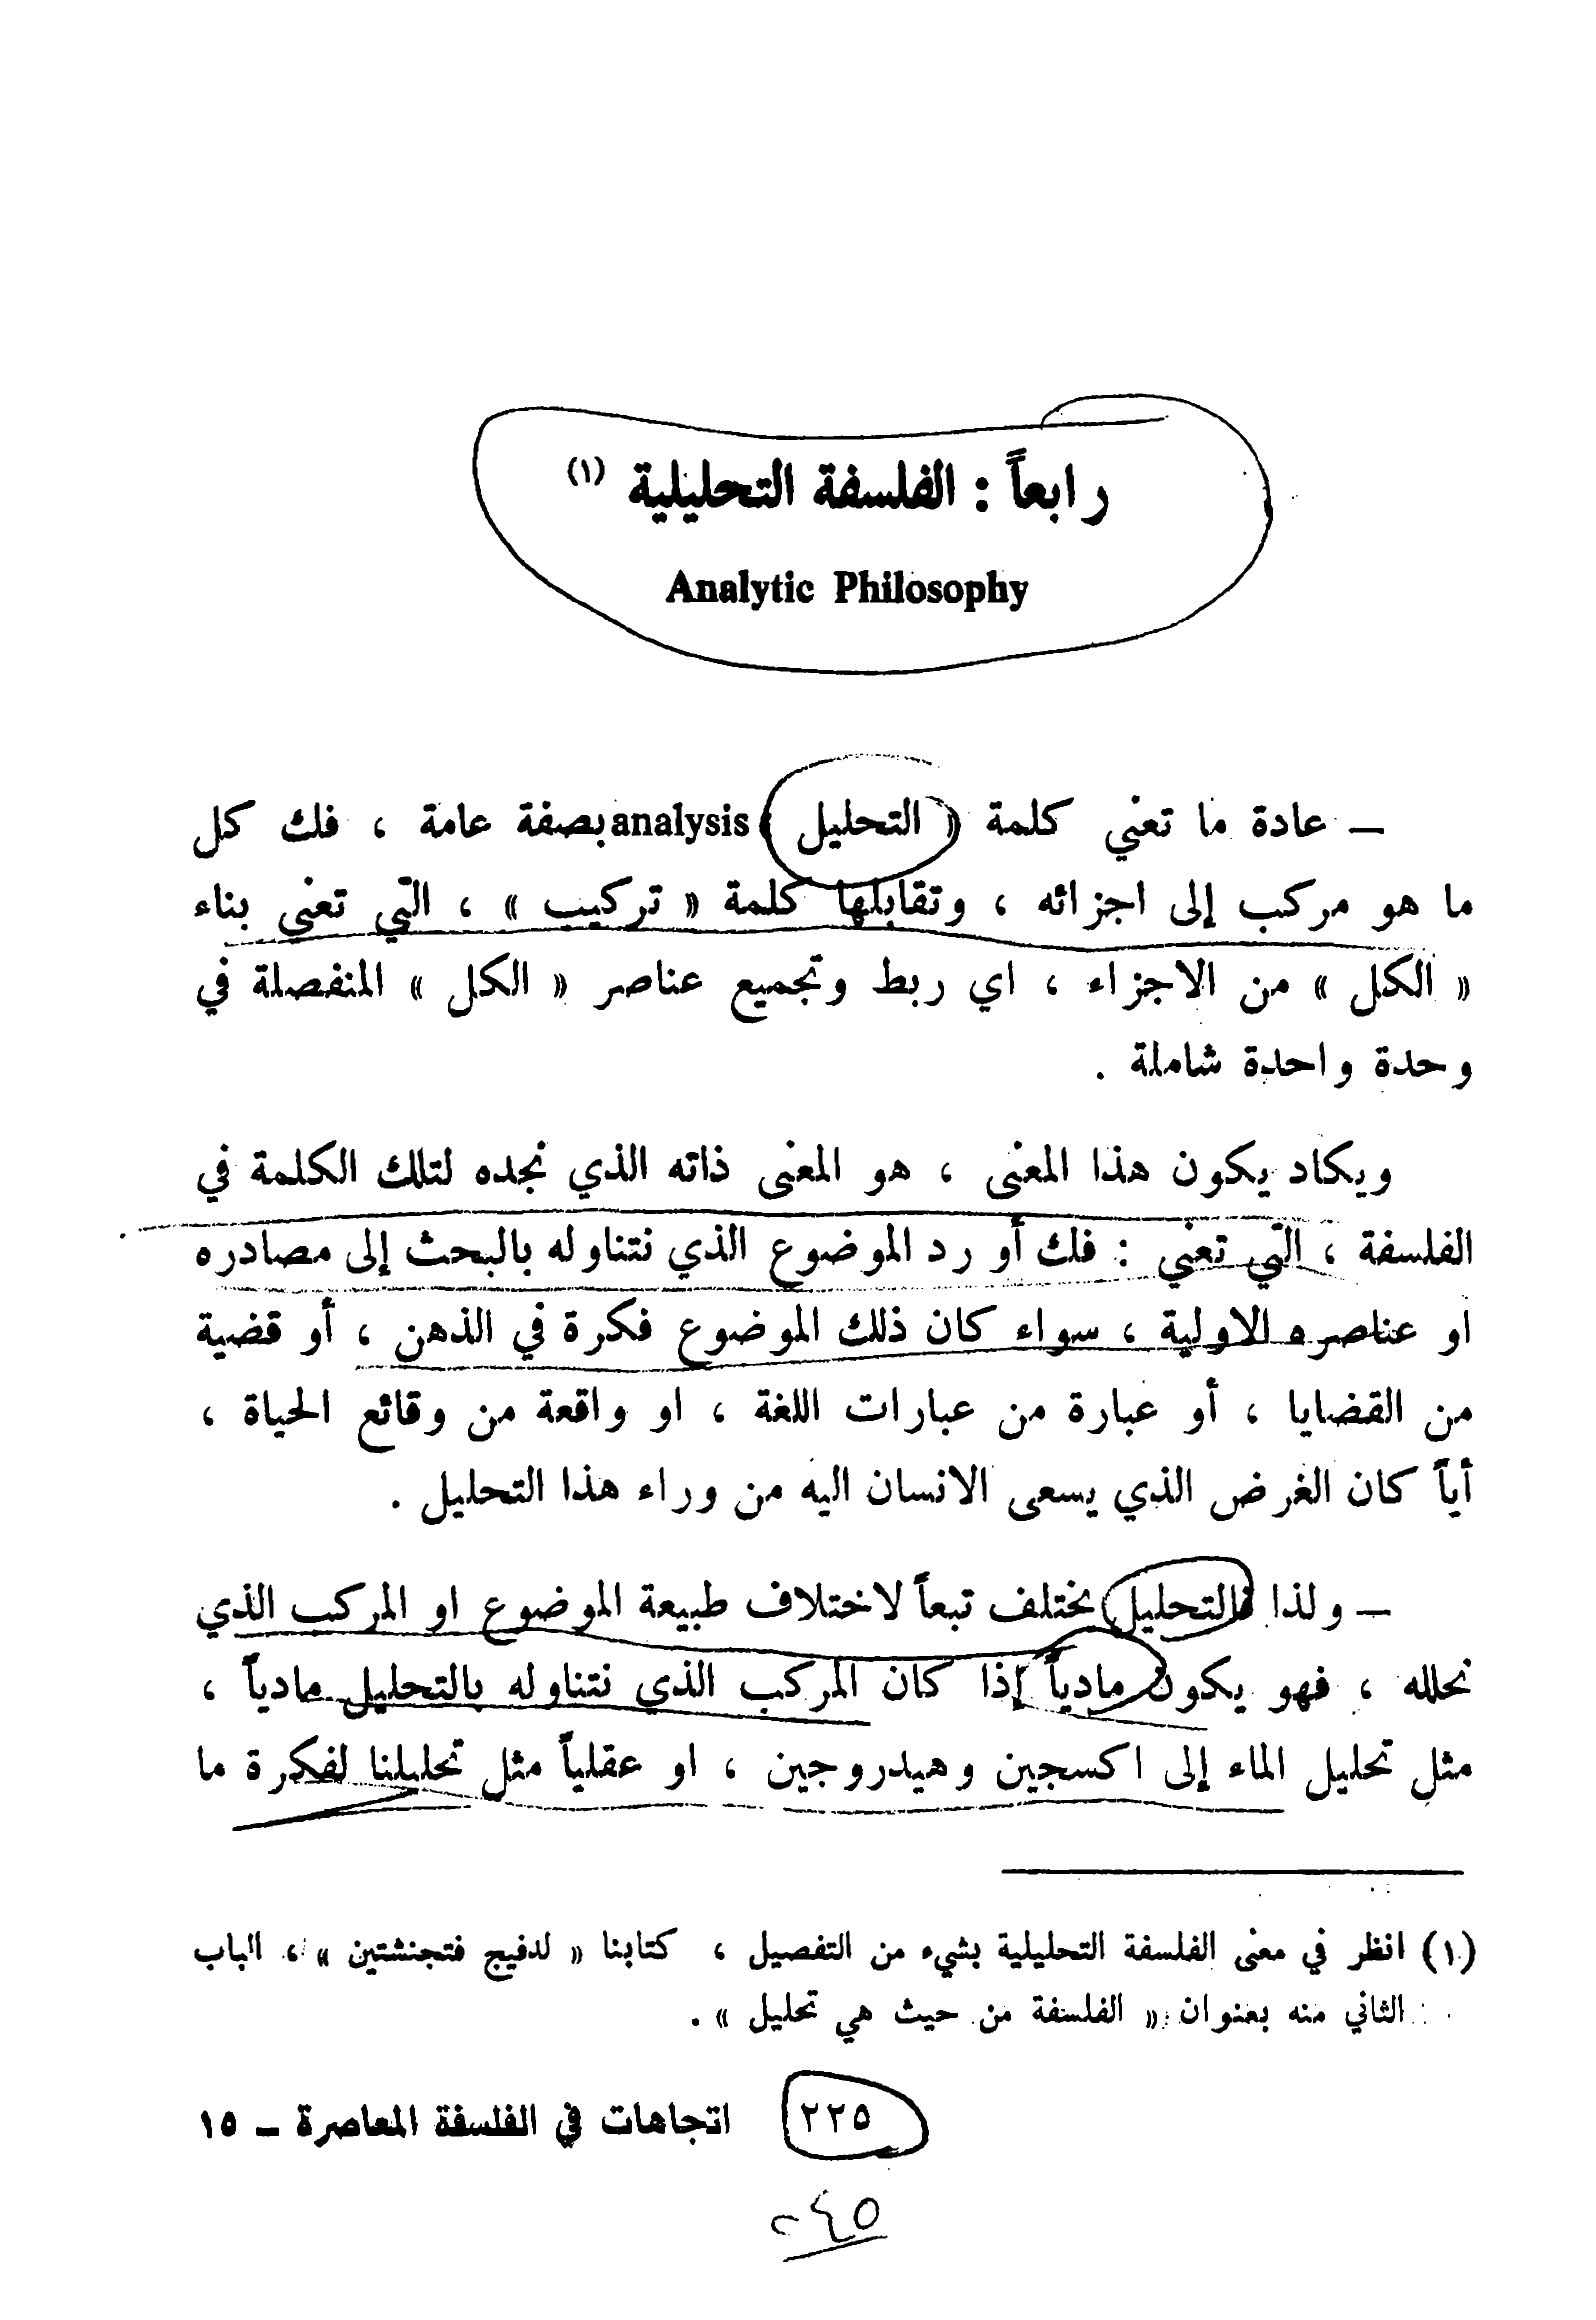 رابعاً : الفلسفة التحليلية (١)
Analytic Philosophy
ــ عادة ما تعني كلمة « التحليل » analysis بصفة عامة ، فك كل
ما هو مركب إلى اجزائه ، وتقابلها كلمة « تركيب » ، التي تعني بناء
« الكل » من الاجزاء ، اي ربط وتجميع عناصر « الكل » المنفصلة في
وحدة واحدة شاملة .
ويكاد يكون هذا المعنى ، هو المعنى ذاته الذي نجده لتلك الكلمة في
الفلسفة ، التي تعني : فك أو رد الموضوع الذي نتناوله بالبحث إلى مصادره
او عناصره الاولية ، سواء كان ذلك الموضوع فكرة في الذهن ، أو قضية
من القضايا ، أو عبارة من عبارات اللغة ، او واقعة من وقائع الحياة ،
أياً كان الغرض الذي يسعى الانسان اليه من وراء هذا التحليل .
ــ ولذا فالتحليل يختلف تبعاً لاختلاف طبيعة الموضوع او المركب الذي
نحلله ، فهو يكون مادياً إذا كان المركب الذي نتناوله بالتحليل مادياً ،
مثل تحليل الماء إلى اكسجين وهيدروجين ، او عقلياً مثل تحليلنا لفكرة ما
(١) انظر في معنى الفلسفة التحليلية بشيء من التفصيل ، كتابنا « لدفيج فتجنشتين » ، الباب
الثاني منه بعنوان « الفلسفة من حيث هي تحليل » .
٢٢٥ اتجاهات في الفلسفة المعاصرة ــ ١٥